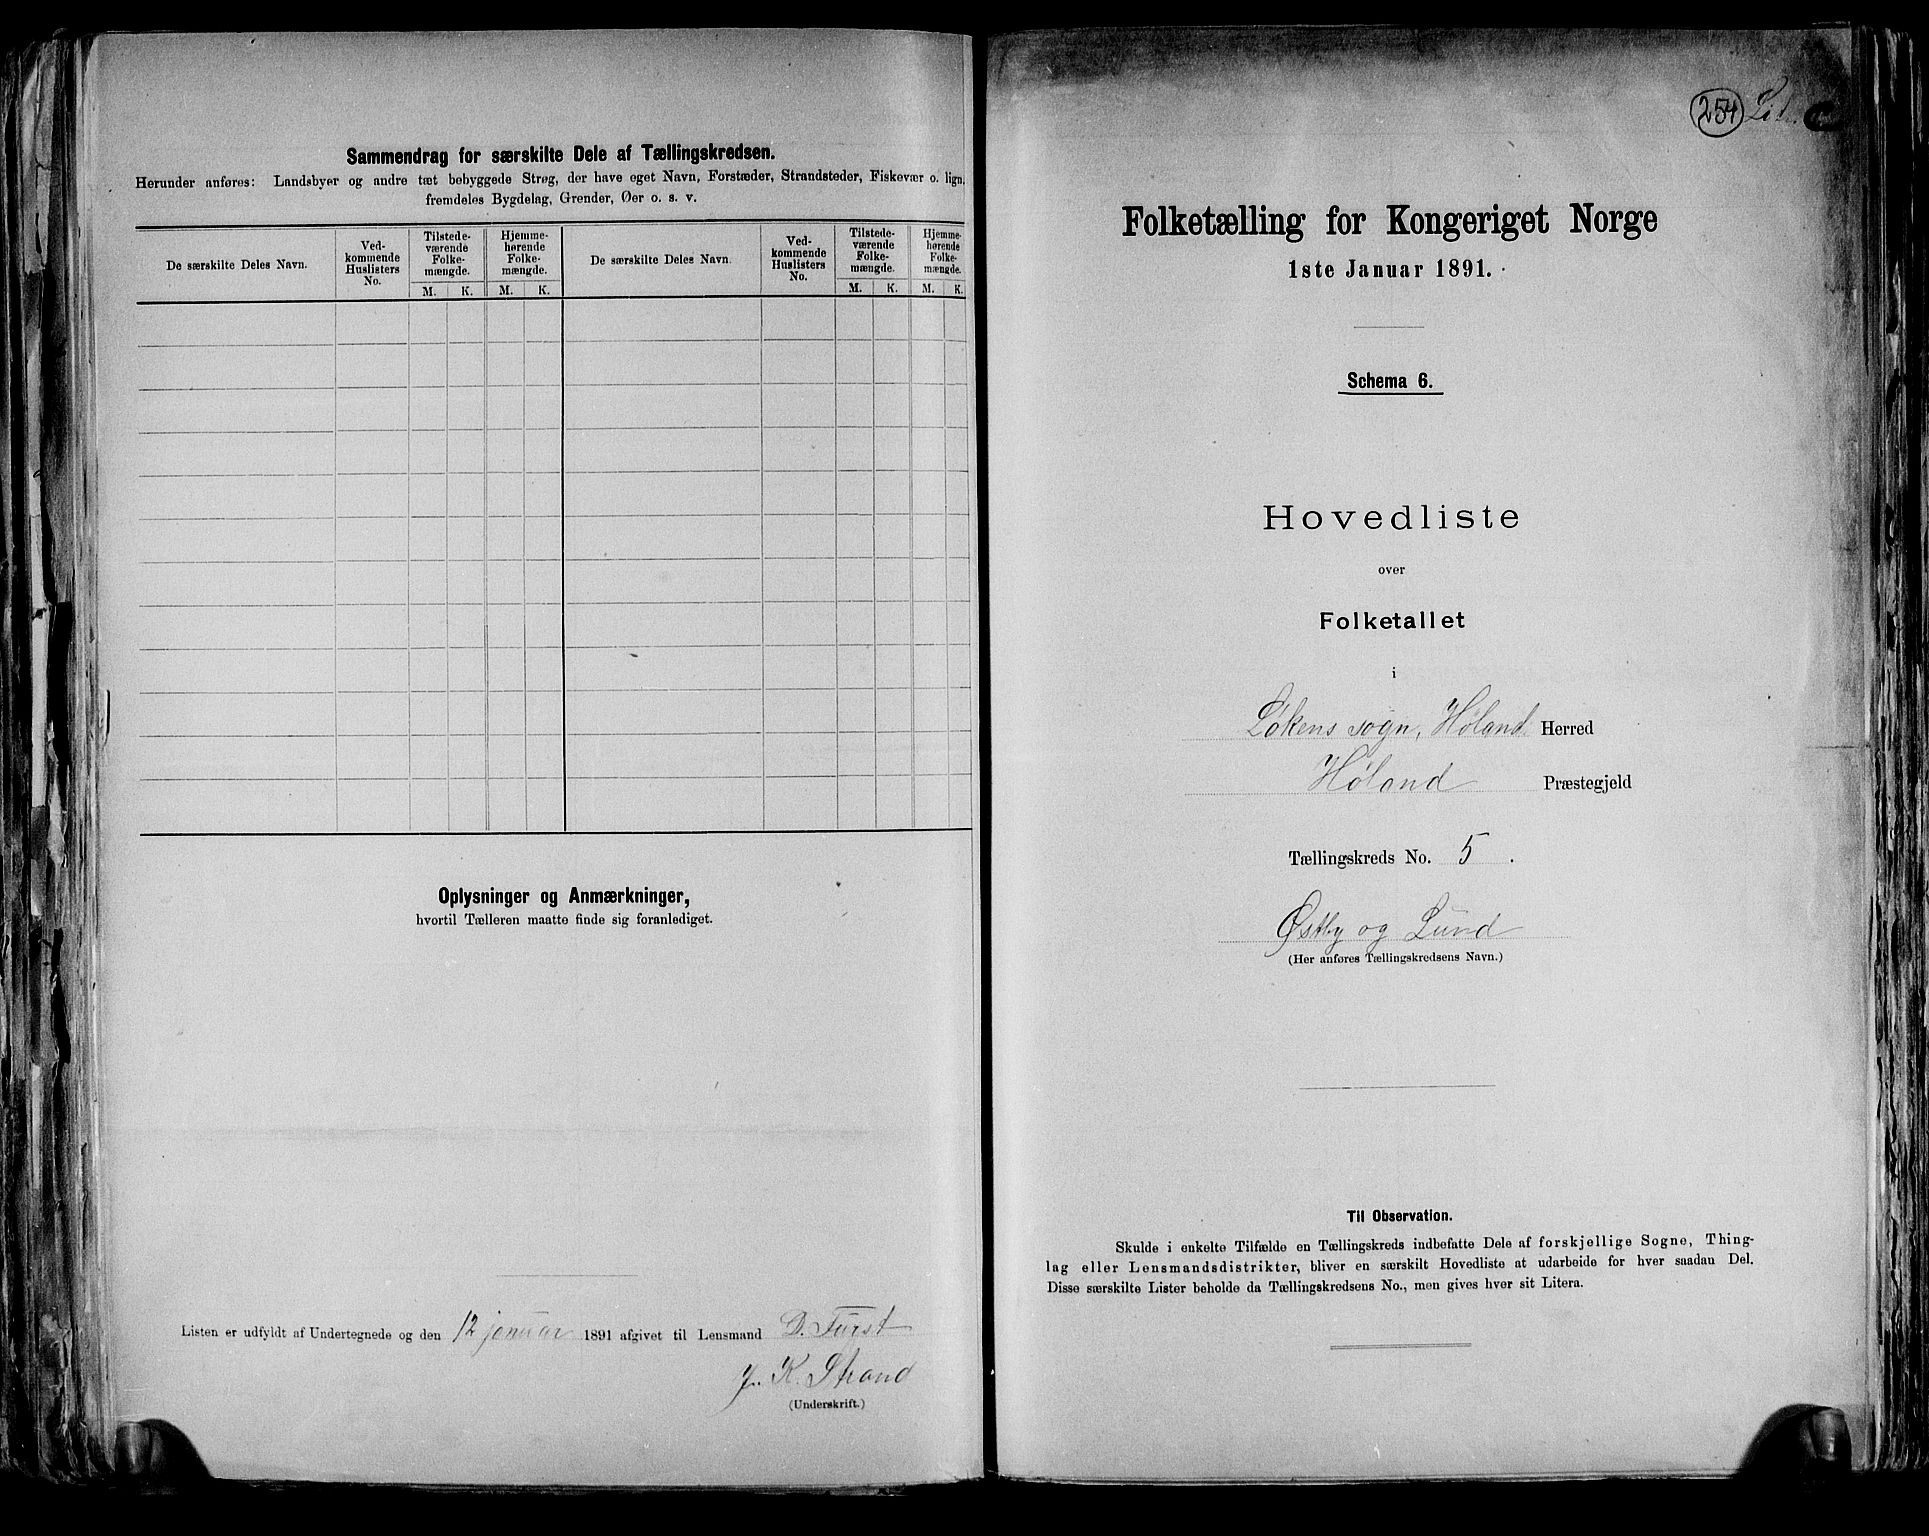 Sammendrag for særskilte Dele af Tællingskredsen.
Herunder anføres: Landsbyer og andre tæt bebyggede Strøg, der have eget Navn, Forstæder, Strandsteder, Fiskevær o. lign.
fremdeles Bygdelag, Grender, Øer o. s. v.
De særskilte Deles Navn.
Ved-
kommende
Huslisters
No.
Tilstede-
værende
Folke-
mængde.
Hjemme-
hørende
Folke-
mængde.
M. K. M. K.
De særskilte Deles Navn.
Ved-
kommende
Huslisters
No.
Tilstede-
værende
Folke-
mængde.
Hjemme-
hørende
Folke-
mængde.
M. K. M. K.
Oplysninger og Anmærkninger,
hvortil Tælleren maatte finde sig foranlediget.
Listen er udfyldt af Undertegnede og den 12 januar 1891 afgivet til Lensmand D. Fürst
J. K. Strand
(Underskrift.)
254 Lit.
Folketælling for Kongeriget Norge
1ste Januar 1891.
Schema 6.
Hovedliste
over
Folketallet
i
Løkens sogn, Høland Herred
Høland Præstegjeld
Tællingskreds No. 5.
Østby og Lund
(Her anføres Tællingskredsens Navn.)
Til Observation.
Skulde i enkelte Tilfælde en Tællingskreds indbefatte Dele af forskjellige Sogne, Thing-
lag eller Lensmandsdistrikter, bliver en særskilt Hovedliste at udarbeide for hver saadan Del.
Disse særskilte Lister beholde da Tællingskredsens No., men gives hver sit Litera.